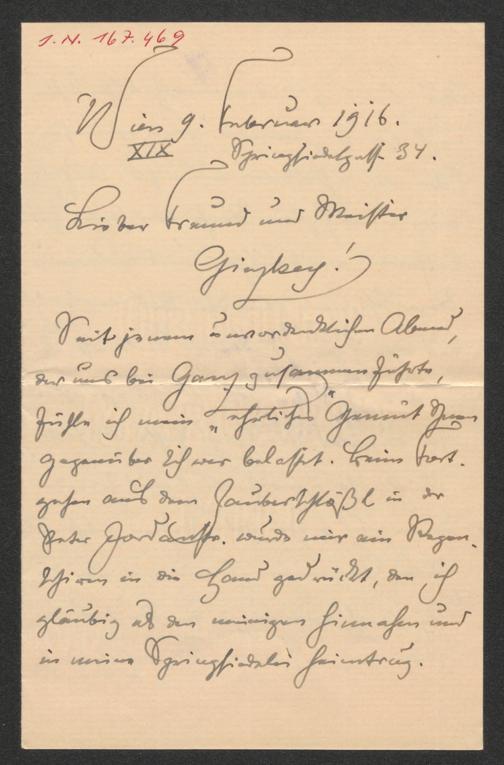 I. N. 167.469
Wien 9. Februar 1916.
XIX Springsiedelgasse 34.
Lieber Freund und Meister
Ginzkey!
Seit jenem unvordenklichen Abend,
der uns bei Ganz zusammenführte,
fühle ich mein "ehrliches" Gemüt Ihnen
gegenüber schwer belastet. Beim Fort-
gehen aus dem Zauberschlößl in der
Peter Jordanstr. wurde mir ein Regen-
schirm in die Hand gedrückt, den ich
gläubig als den meinigen hinnahm und
in meine Springsiedelei heimtrug.